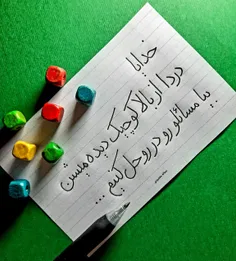 خدایا
دردا از بالا کوچیک دیده میشن
بیا مسائلو رو در رو حل کنیم ...